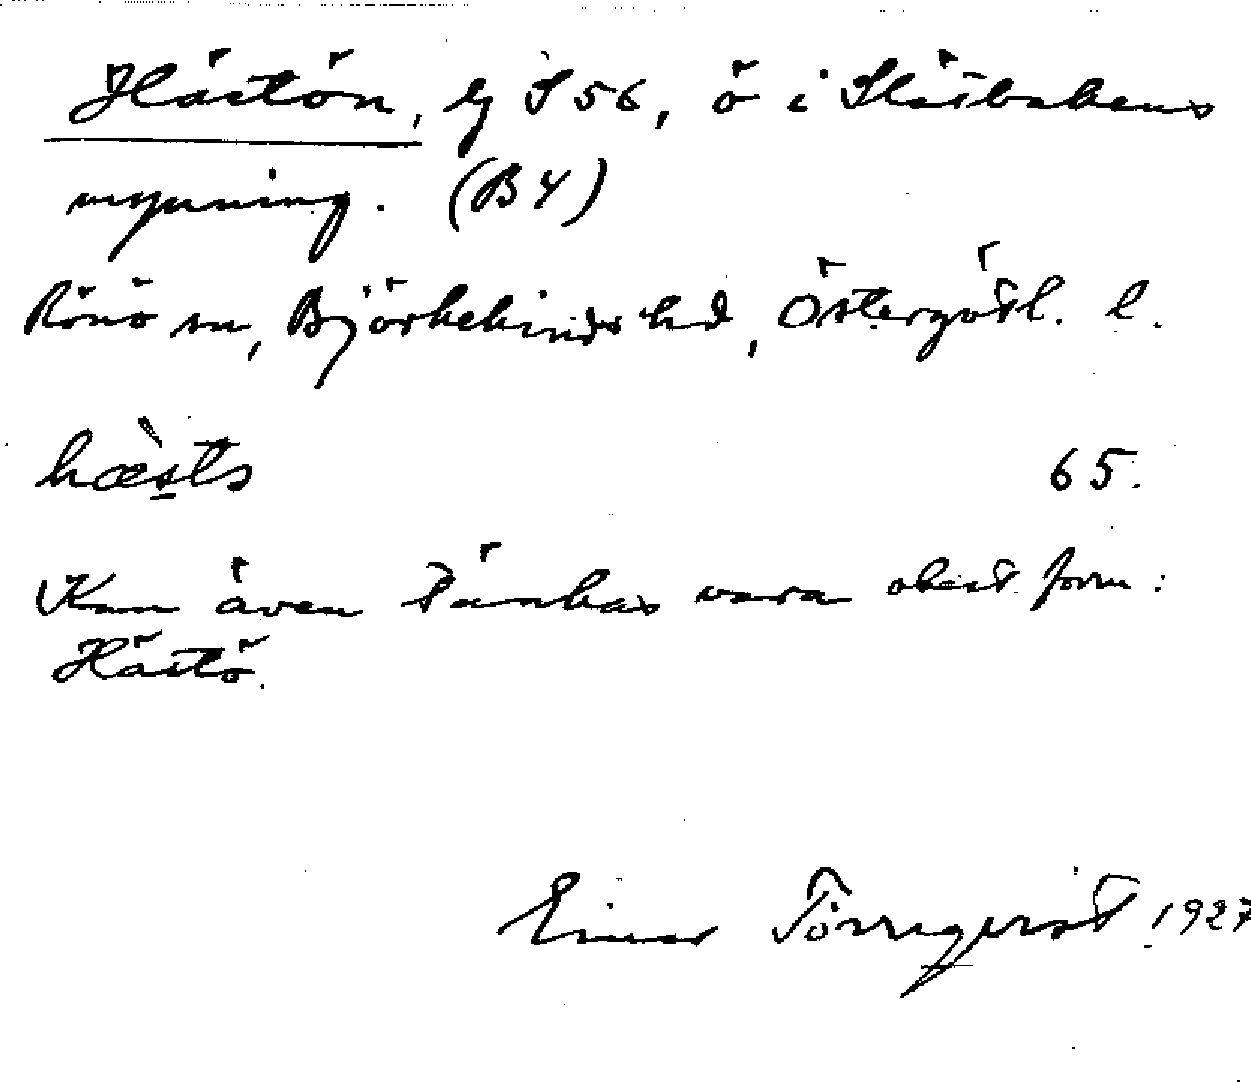 Hästön, lg S 56, ö i Slätbakens
mynning. (B4)
Rönö sn, Björkekinds hd, Östergötl. l.
hæ̀sts 65.
Kan även tänkas vara obest form:
Hästö.
Einar Törnqvist 1927